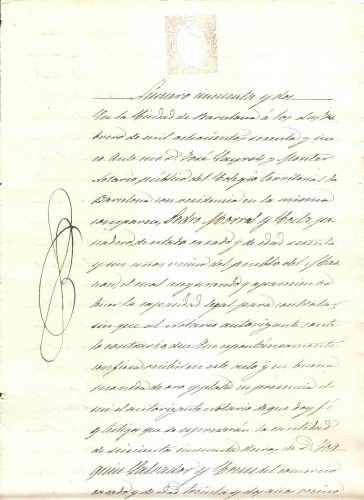 Numero cincuenta y dos
En la Ciudad de Barcelona á los dos Fe
brero de mil ochocientos setenta y un
o Ante mi D. José Layrol y Montar
Notario público del Colegio territorial de
Barcelona con residencia en la misma
comparece Pedro Morral y Costa pa
nadero de estado casado y de edad sesenta
y un años vecino del pueblo del
el cual asegurando y apareciendo
tener la capacidad legal para contratar
sin que al Notario autorizante conste
lo contrario dice Que espontáneamente
confiesa recibir en este acto y en buena
moneda de oro y plata en presencia de
mi el autorizante Notario de que doy fé
y testigos que se expresarán la cantidad
de seiscientos cincuenta duros de D. Joa
quin Salvador y Creus del comercio
casado y de edad treinta y dos años vecino